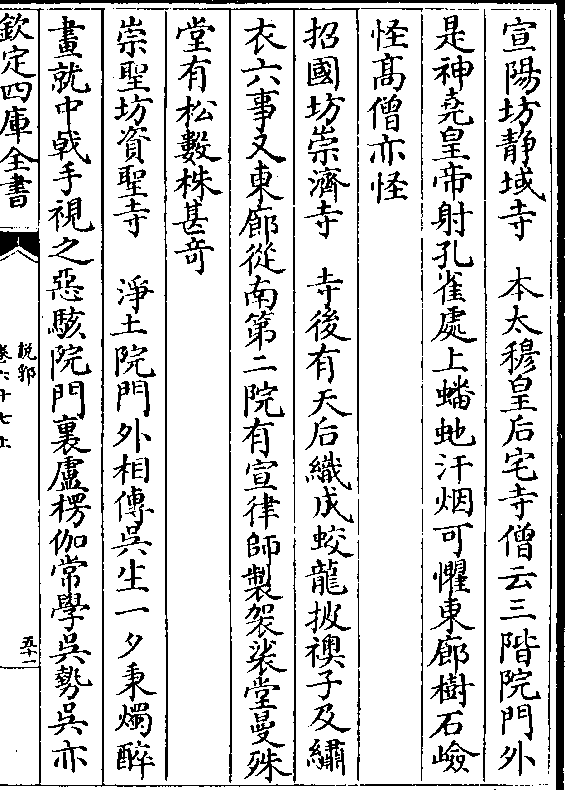 宣陽坊静域寺　本太穆皇后宅寺僧云三階院門外
是神堯皇帝射孔雀處上蟠虵汗烟可懼東廊樹石嶮
怪髙僧亦怪
招國坊崇濟寺　寺後有天后織成蛟龍披襖子及繡
衣六事又東廊從南第二院有宣律師製袈裟堂曼殊
堂有松數株甚奇
崇聖坊資聖寺　淨土院門外相傳吳生一夕秉燭醉
畫就中戟手視之惡駭院門裏盧楞伽常學吳勢吳亦
欽定四庫全書
説郛
卷六十七上
五十一